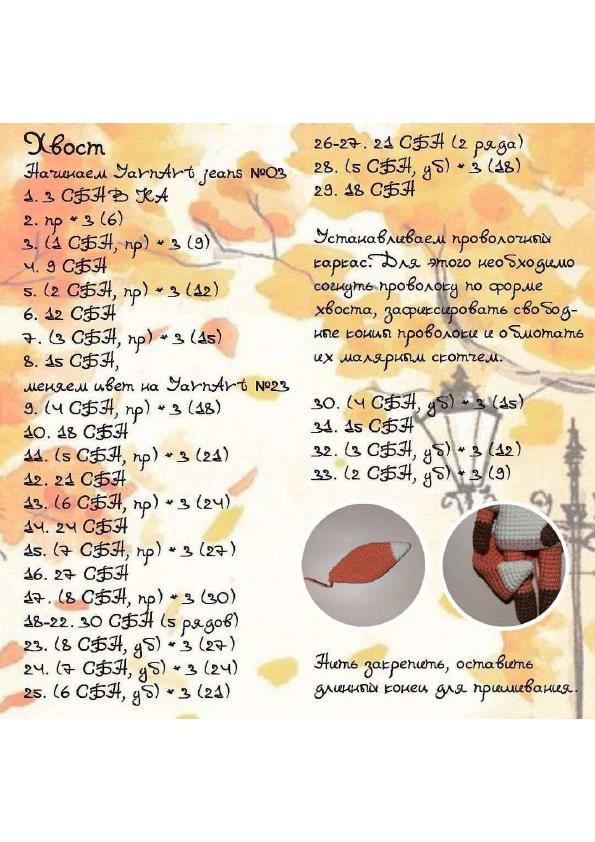 Хвост
Начинаем YarnArt jeans №03
1. 3 СБН В КА
2. пр * 3 (6)
3. (1 СБН, пр) * 3 (9)
4. 9 СБН
5. (2 СБН, пр) * 3 (12)
6. 12 СБН
7. (3 СБН, пр) * 3 (15)
8. 15 СБН,
меняем цвет на YarnArt №23
9. (4 СБН, пр) * 3 (18)
10. 18 СБН
11. (5 СБН, пр) * 3 (21)
12. 21 СБН
13. (6 СБН, пр) * 3 (24)
14. 24 СБН
15. (7 СБН, пр) * 3 (27)
16. 27 СБН
17. (8 СБН, пр) * 3 (30)
18-22. 30 СБН (5 рядов)
23. (8 СБН, уб) * 3 (27)
24. (7 СБН, уб) * 3 (24)
25. (6 СБН, уб) * 3 (21)
26-27. 21 СБН (2 ряда)
28. (5 СБН, уб) * 3 (18)
29. 18 СБН
Устанавливаем проволочный
каркас. Для этого необходимо
согнуть проволоку по форме
хвоста, зафиксировать свобод-
ные концы проволоки и обмотать
их малярным скотчем.
30. (4 СБН, уб) * 3 (15)
31. 15 СБН
32. (3 СБН, уб) * 3 (12)
33. (2 СБН, уб) * 3 (9)
Нить закрепить, оставить
длинный конец для пришивания.